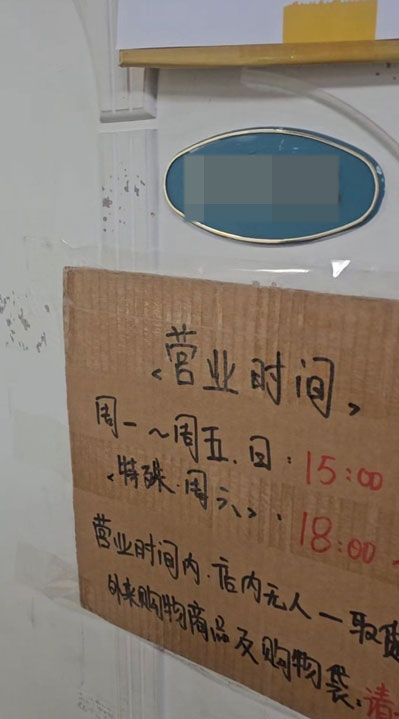 <营业时间>
周一～周五.日：15:00
<特殊.周六>：18:00
营业时间内.店内无人一取
外来购物商品及购物袋.请